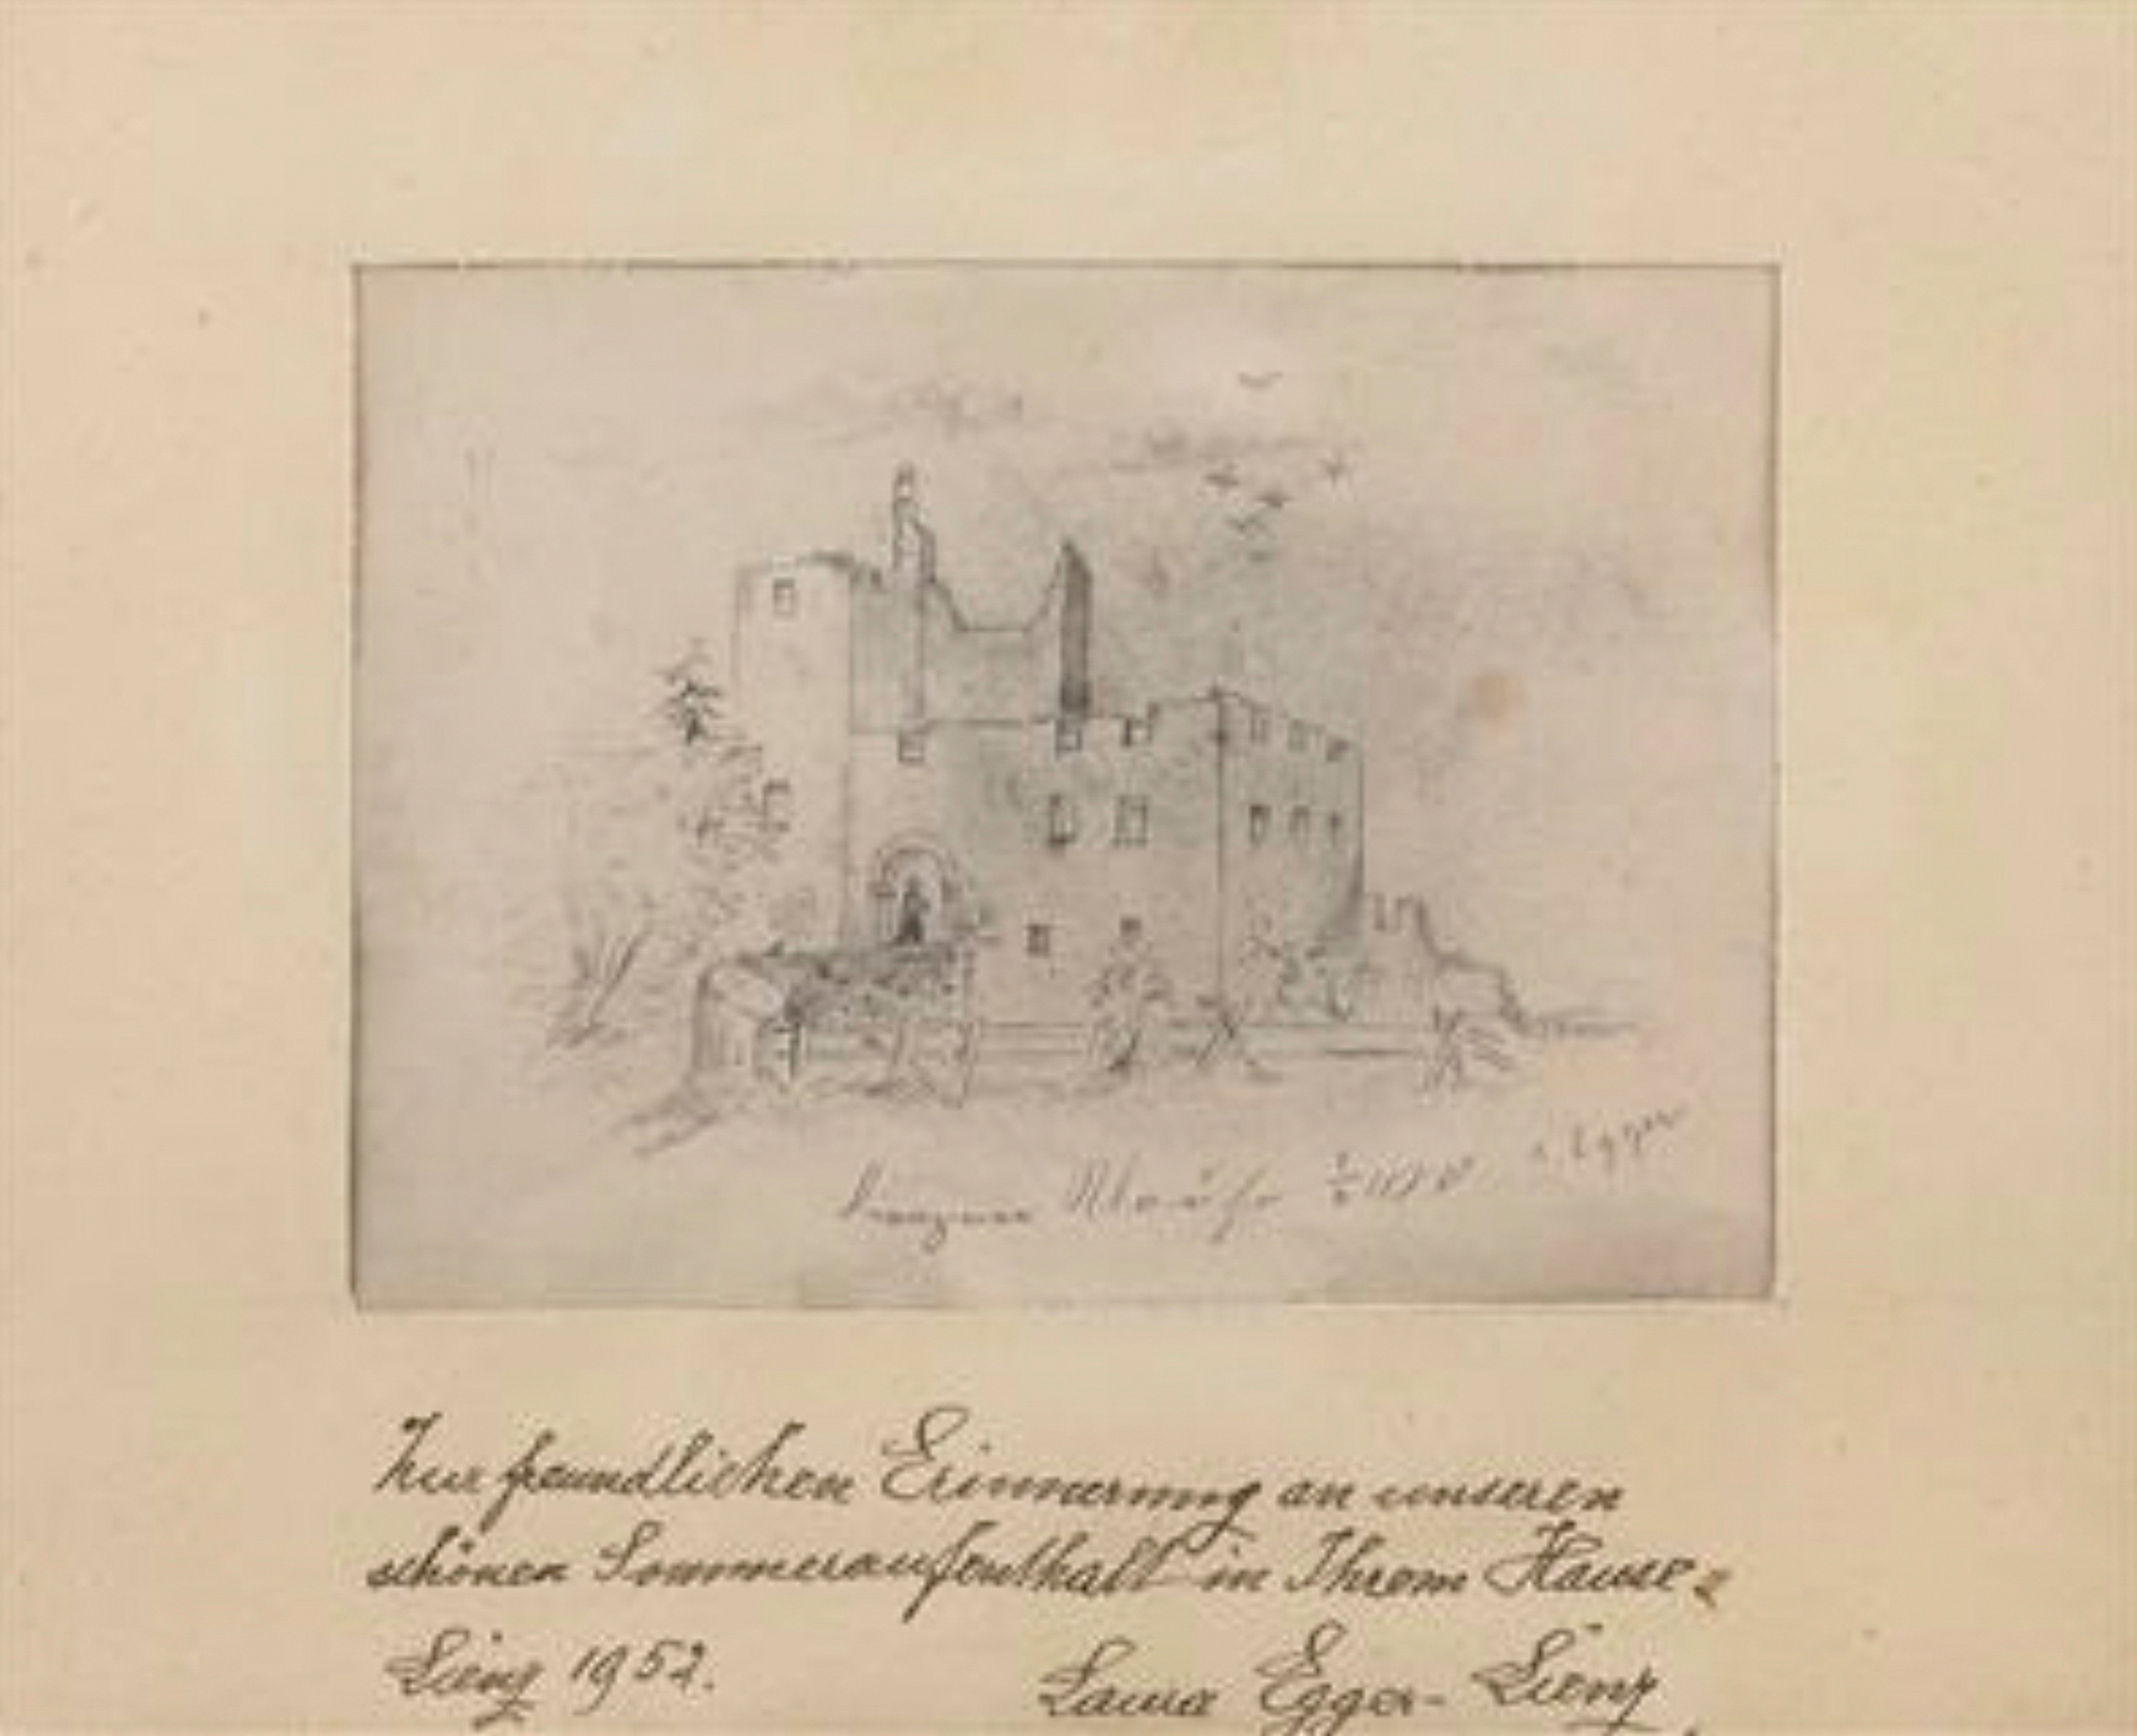 Egger
Zur freundlichen Erinnerung an unseren
schönen Sommeraufenthalt in Ihrem Hause.
Lienz 1952.
Laura Egger-Lienz